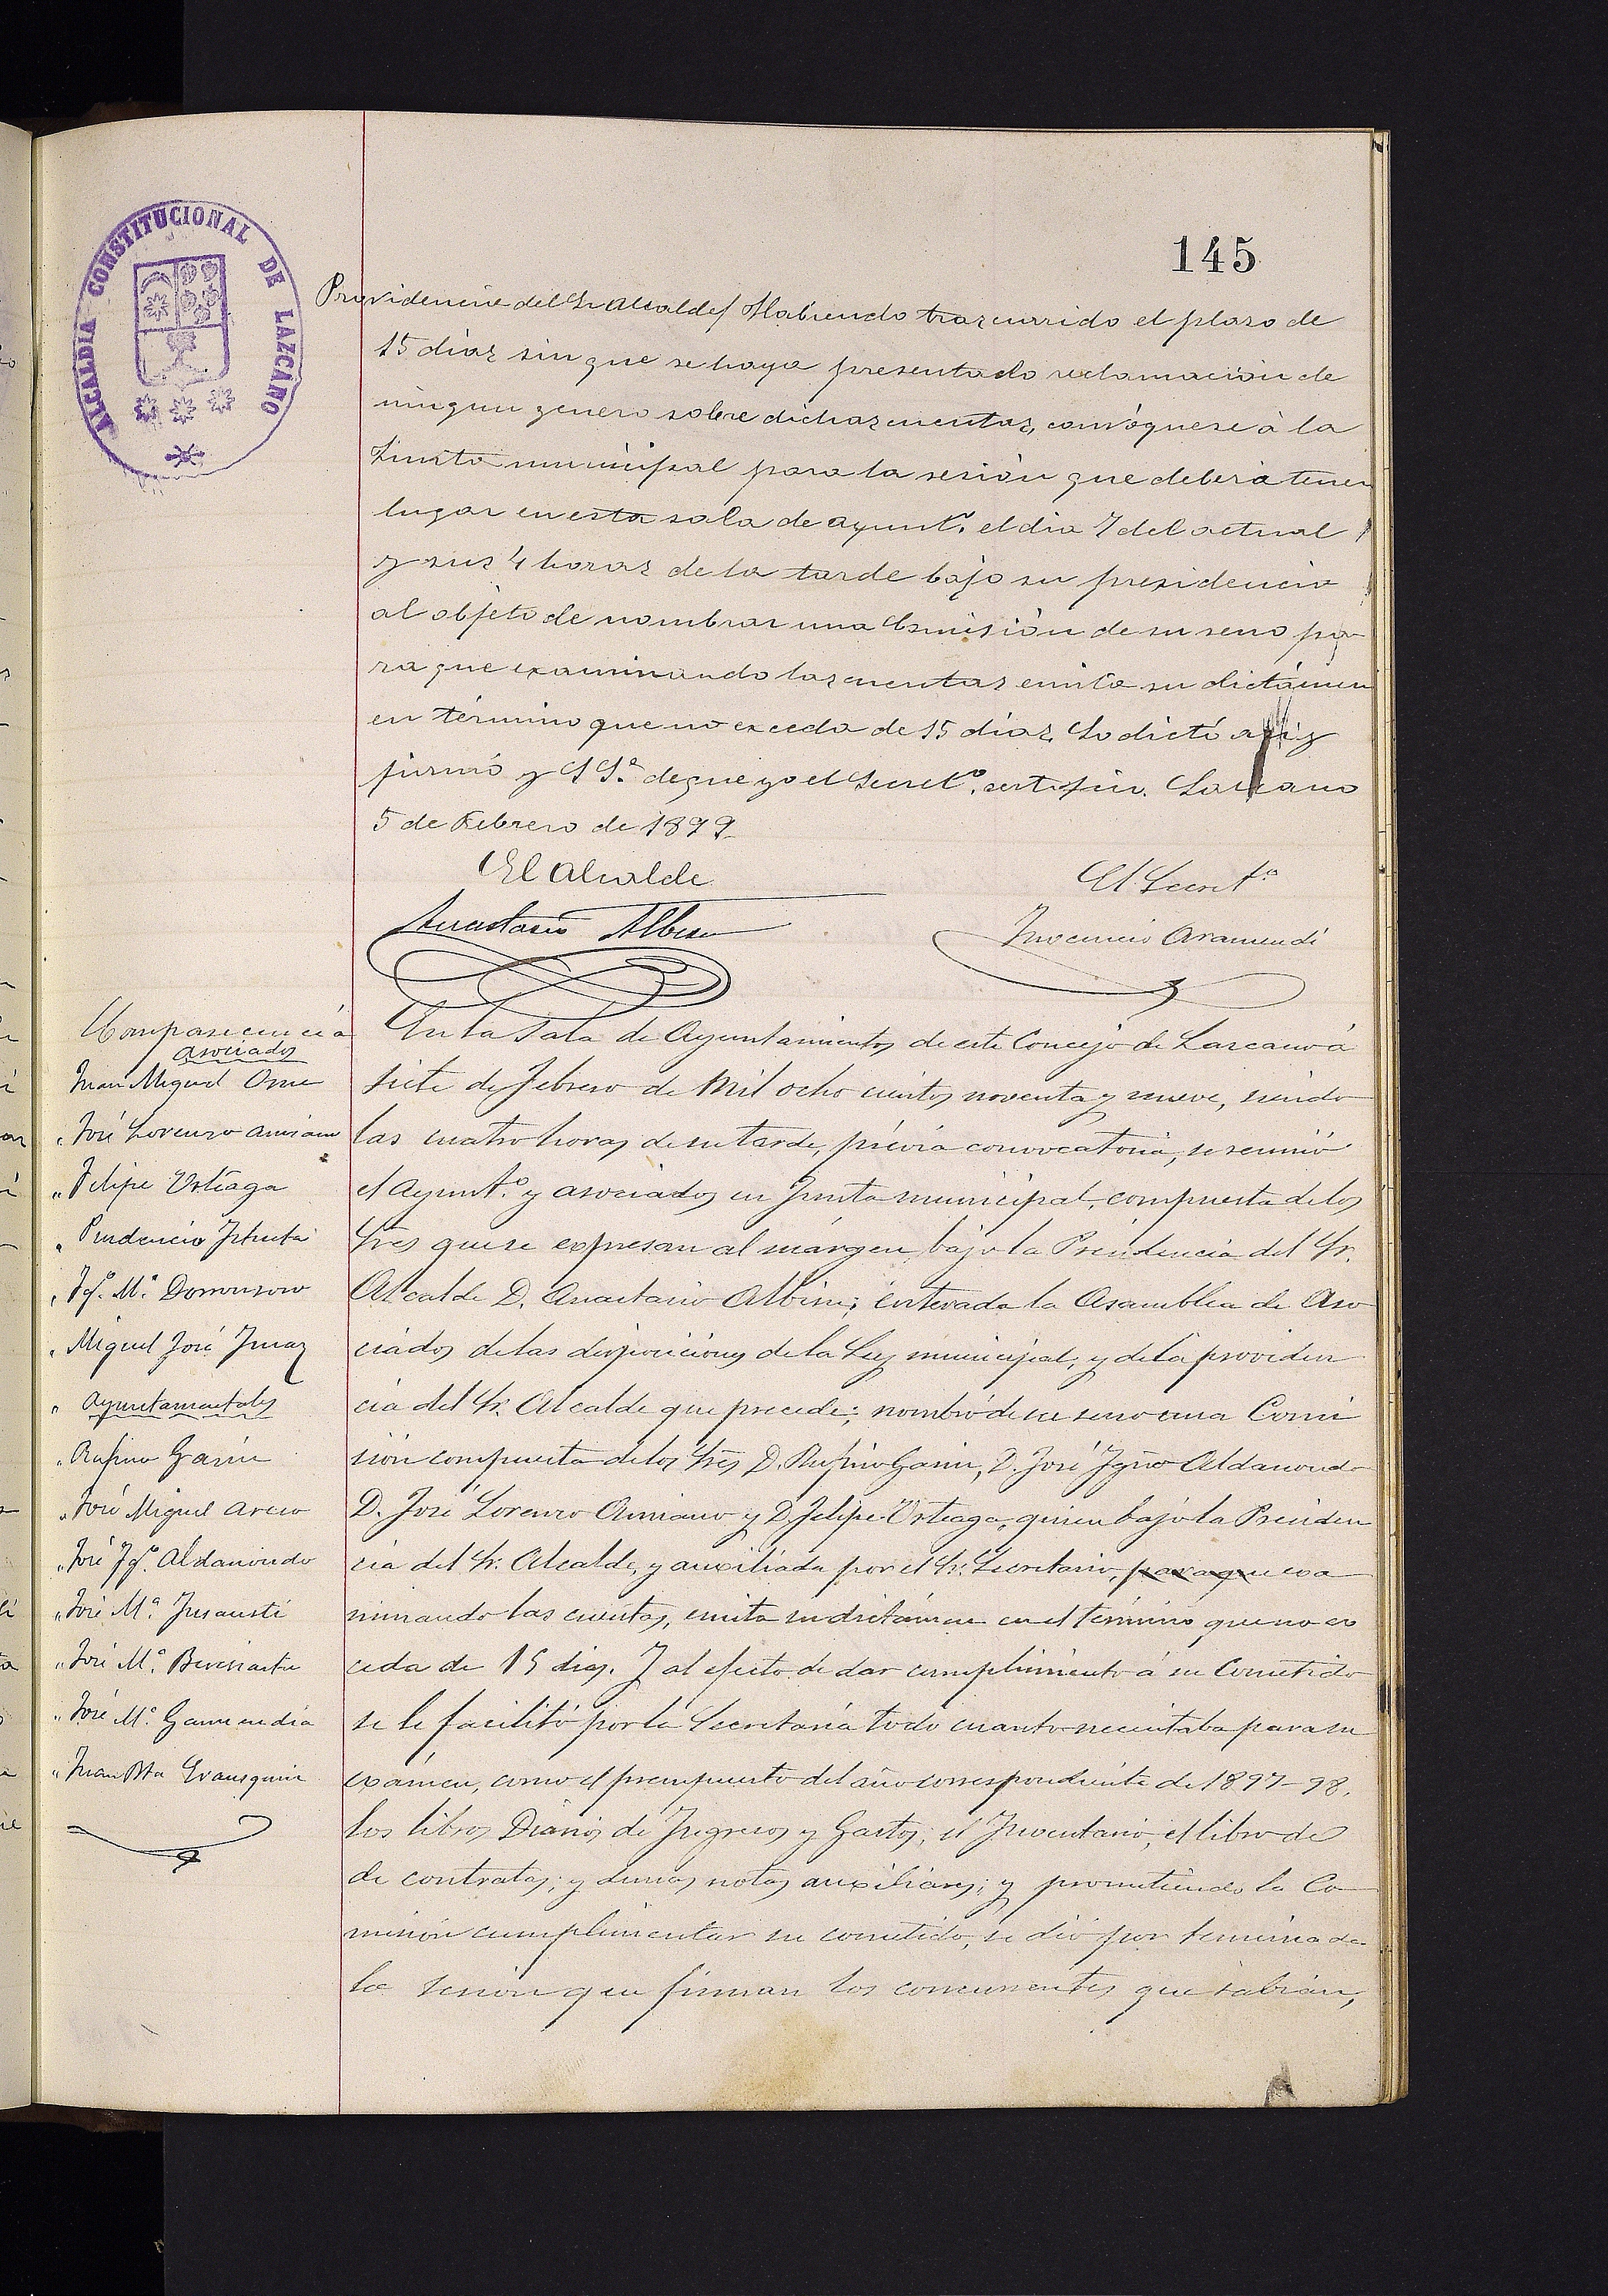 ALCALDIA CONSTITUCIONAL DE LAZCANO
145
Providencia del Sr Alcalde/ Habiendo trascurrido el plaso de
15 dias sin que se haya presentado reclamacion de
ningun genero sobre dichas cuentas, convóquese à la
Junta municipal para la sesión que deberá tener
lugar en esta sala de ayuntº. el dia 7 del actual
y sus 4 horas de la tarde bajo su presidencia
al objeto de nombrar una Comisión de su seno pa
ra que examinando las cuentas emita su dictámen
en término que no exceda de 15 dias. Lo dictó asi y
firmó y S Sª. de que yo el Secretº. certifico. Lazcano
5 de Febrero de 1899.
El Alcalde
El Secretº
Anastasio Albisu
Inocencio Aramendi
Comparecencia
asociados
Juan Miguel
" José Lorenzo Amiano
" Felipe Urteaga
" Prudencio
" Jº. Mª. Dorronsoro
" Miguel José
" Ayuntamentales
" Rufino Garin
" José Miguel
" José Jº. Aldanondo
" José Mª. Insausti
" José Mª.
" José Mª. Garmendia
" Juan Bta Erausquin
En la Sala de Ayuntamientos de este Concejo de Lazcano á
siete de Febrero de Mil ocho cientos noventa y nueve, siendo
las cuatro horas de su tarde, prévia convocatoria, se reunió
el Ayuntº. y asociados en Junta municipal, compuesta de los
Sres que se expresan al márgen, bajo la Presidencia del Sr.
Alcalde D. Anastasio Albisu; enterada la Asamblea de Aso
ciados de las disposiciones de la Ley municipal, y de la providen
cia del Sr. Alcalde que precede; nombró de su seno una Comi
sión compuesta de los Sres D. Rufino Garin, D. José Igno Aldanondo
D. José Lorenzo Amiano y D. Felipe Urteaga, quien bajo la Presiden
cia del Sr. Alcalde, y auxiliada por el Sr. Secretario, para que exa
minando las cuentas, emita su dictámen en el término que no ex
ceda de 15 dias. Y al efecto de dar cumplimiento á su Cometido
se le facilitó por la Secretaría todo cuanto necesitaba para su
exámen, como el presupuesto del año correspondiente de 1897-98,
los libros Diarios de Ingresos y Gastos; el Inventario, el libro de
de contratas; y demas notas auxiliares; y prometiendo la Co
misión cumplimentar su cometido, se dió por terminada
la sesión que firman los concurrentes que sabian,